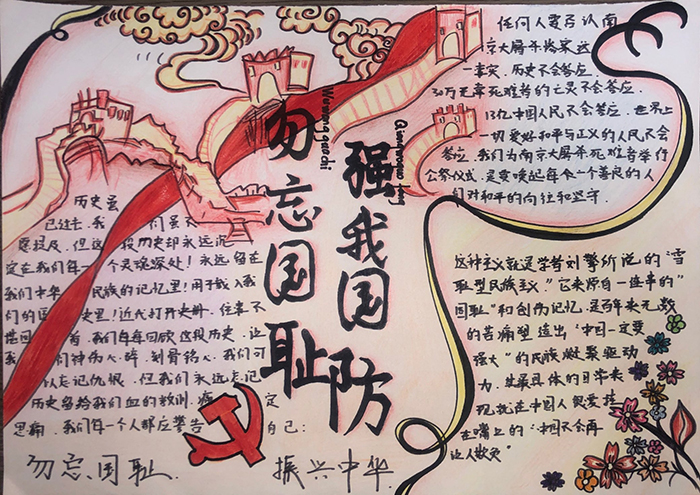 勿忘国耻
强我国防
Wuwangguochi
任何人要否认南
京大屠杀惨案这
一事实,历史不会答应.
30万无辜死难者的亡灵不会答应.
13亿中国人民不会答应.世界上
一切爱好和平与正义的人民不会
答应.我们为南京大屠杀死难者举行
公祭仪式,是要唤起每一个善良的人
们对和平的向往和坚守.
历史虽
已过去.我们虽不
愿提及.但这段历史却永远沉
淀在我们每一个灵魂深处!永远留在
我们中华民族的记忆里!用于载入我
们的国史里!近代打开史册.往事不
堪回首.我们每每回顾这段历史.让
我们钟伤人碎.刻骨铭心.我们可
以忘记仇恨.但我们永远忘记
历史留给我们血的教训.痛定
思痛.我们每一个人都应警告自己:
勿忘国耻.振兴中华.
这种主义就是学者刘擎所说的"雪
耻型民族主义".它来源自一连串的"
国耻"和创伤记忆.是百年来无数
的苦痛塑造出"中国一定要
强大"的民族凝聚驱动
力.其最具体的日常表
现就是中国人民爱挂
在嘴上的:"中国不会再
让人欺负"